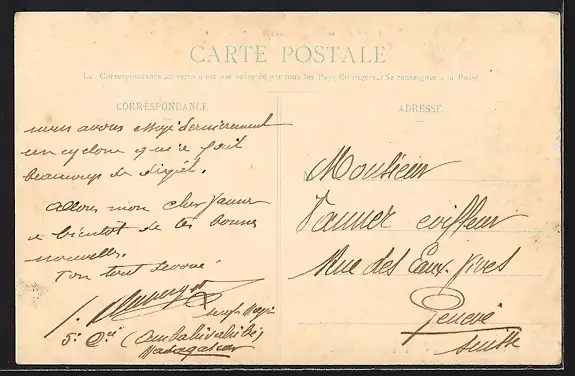 CARTE POSTALE
La Correspondance au recto n'est pas acceptée par tous les Pays Etrangers. (Se renseigner à la Poste)
CORRESPONDANCE
nous avons essuyé dernièrement
un cyclone qui a fait
beaucoup de dégât.
Allons mon cher Vannier
à bientôt de tes bonnes
nouvelles.
Ton tout dévoué
5e Cie (Ambahivahibé)
Madagascar
ADRESSE
Monsieur
Vannier coiffeur
Rue des Eaux-Vives
Genève
Suisse